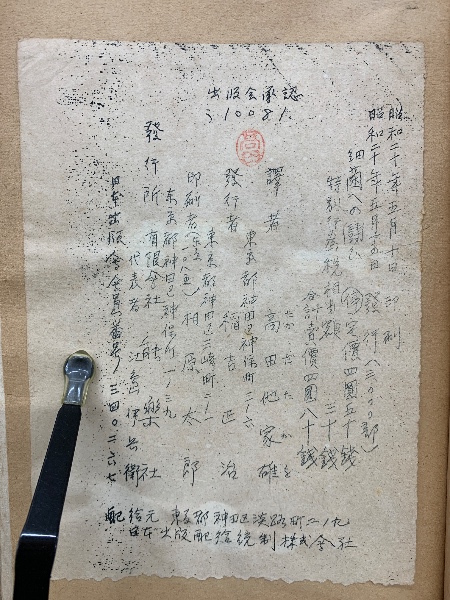 出版会承認
う10081
昭和二十年五月十日 印刷
昭和二十年五月十五日 發行(三〇〇〇部)
細菌への闘ひ 定價四圓五十錢
特別行為税相当額 三十錢
合計賣價四圓八十錢
譯者 高田他家雄
たかだたかを
東京都神田区神保町二ノ六
發行者 稲吉正治
東京都神田区三崎町二ノ一
印刷者 相原太郎
東京都神田区神保町一ノ三九
發行所 有限会社 能樂社
代表者 江島伊兵衛
日本出版会会員番号 三四〇二六七
配給元 東京都神田区淡路町二ノ九
日本出版配給統制株式会社